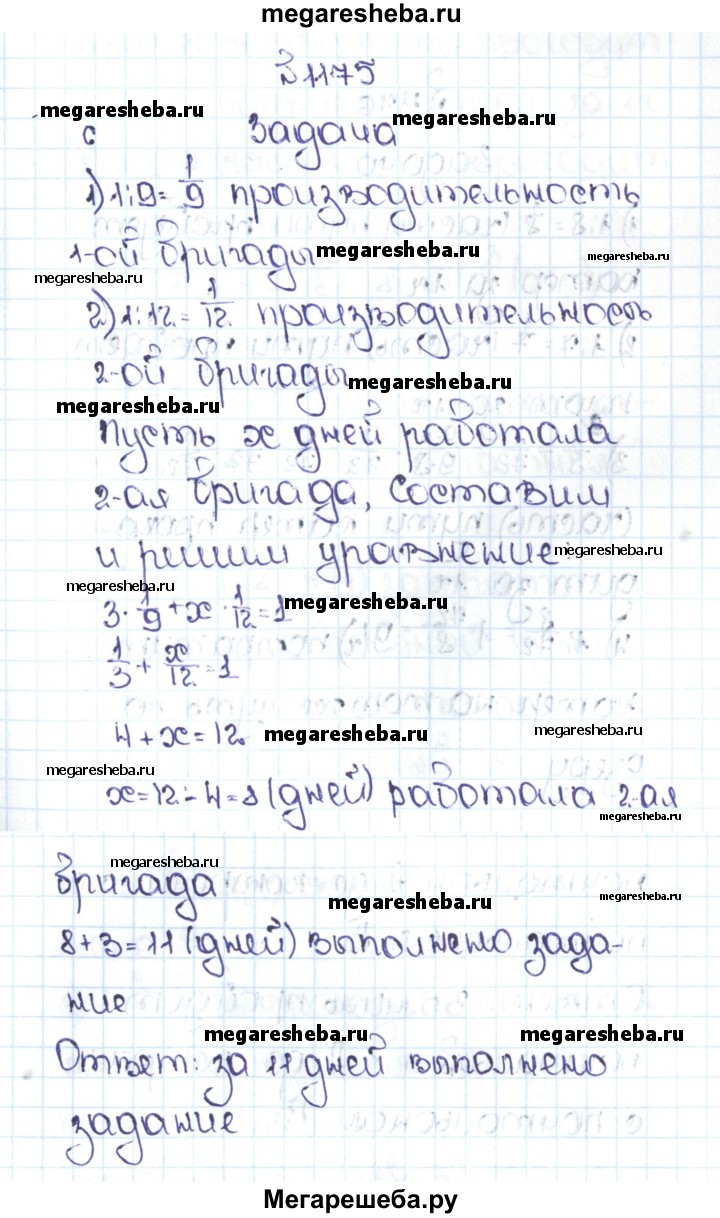 megaresheba.ru
№1175
megaresheba.ru
с Задача megaresheba.ru
1) 1:9= 1/9 производительность
1-ой бригады megaresheba.ru megaresheba.ru
megaresheba.ru
2) 1:12= 1/12 производительность
2-ой бригады megaresheba.ru
megaresheba.ru
Пусть x дней работала
2-ая бригада, составим
и решим уравнение: megaresheba.ru
megaresheba.ru
3·1/9+x·1/12=1 megaresheba.ru
1/3+x/12=1
4+x=12 megaresheba.ru
megaresheba.ru
x=12-4=8 (дней) работала 2-ая
megaresheba.ru
megaresheba.ru
бригада megaresheba.ru
megaresheba.ru
8+3=11 (дней) выполнено зада-
ние
megaresheba.ru megaresheba.ru
Ответ: за 11 дней выполнено
задание
Мегарешеба.ру